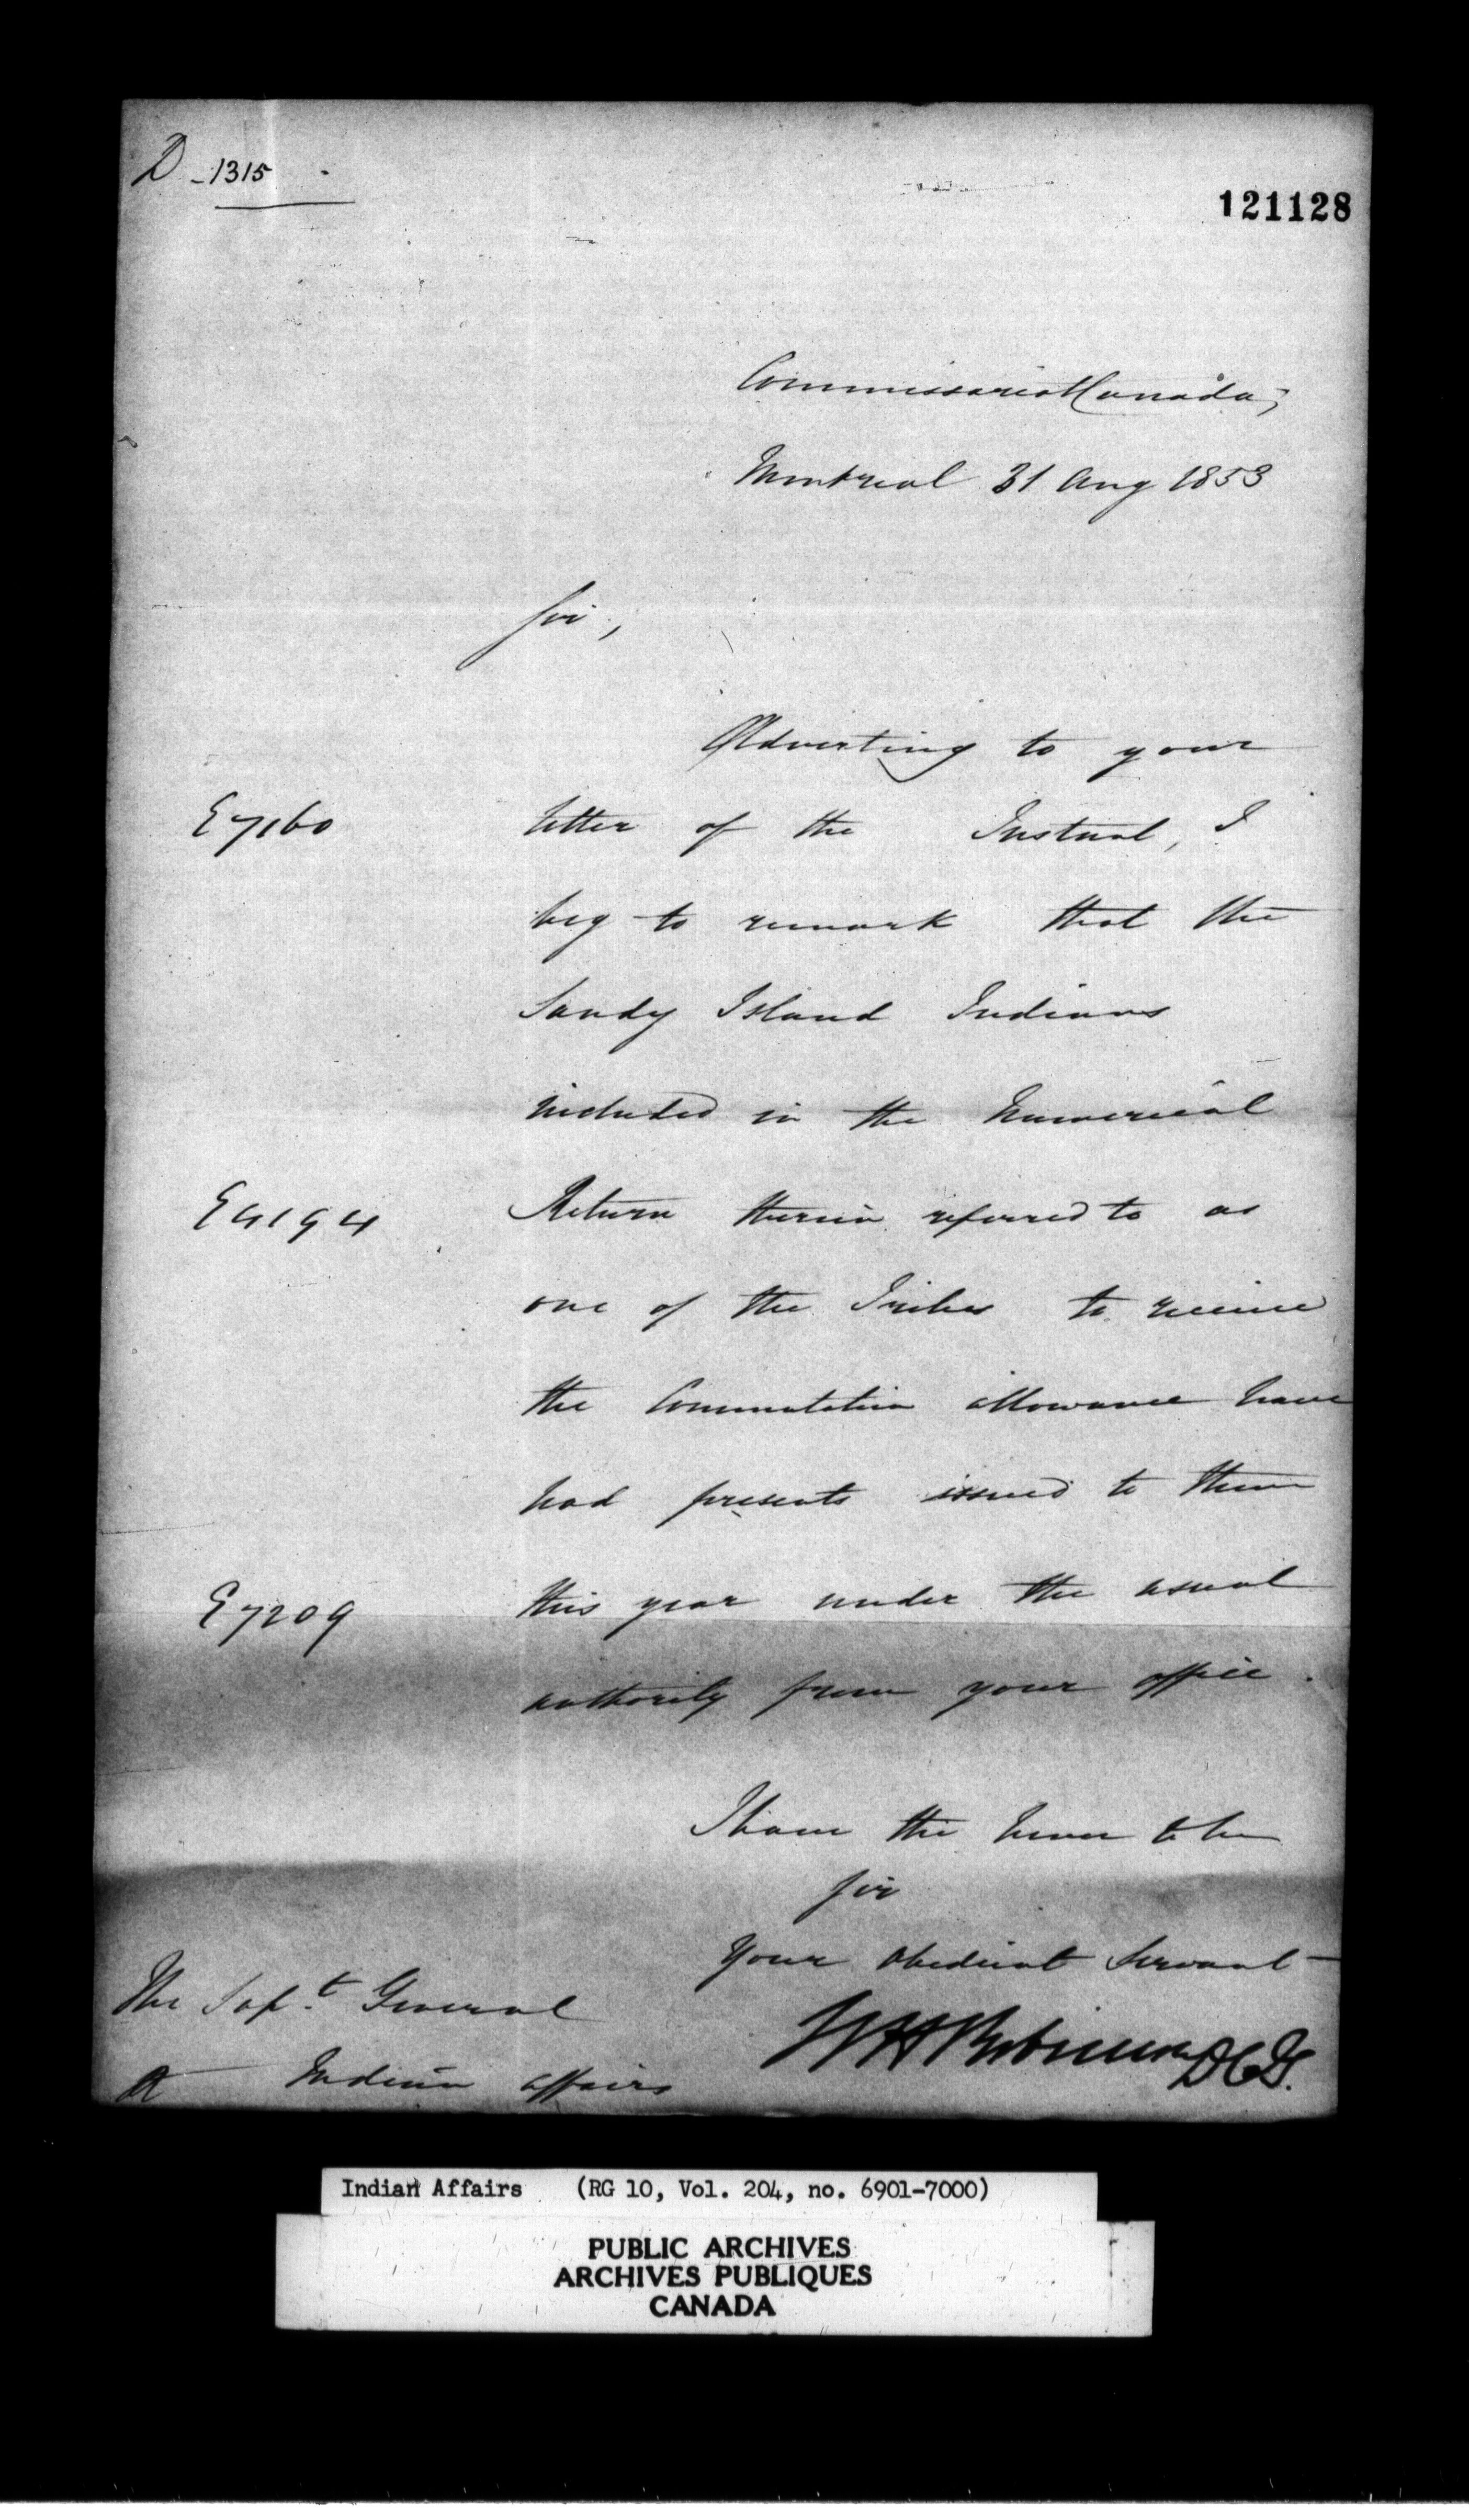 D - 1315
121128
Commissariat Canada,
Montreal 31 Aug 1853
Sir,
Adverting to your
E 7160 letter of the Instant, I
beg to remark that the
Sandy Island Indians
included in the Numerical
E 4194 Return therein referred to as
one of the Tribes to receive
the Commutation allowance have
had presents issued to them
E 7209 this year under the usual
authority from your office.
I have the honor to be
Sir
Your obedient Servant
The Supt. General
WH Robinson DCG.
Indian Affairs
Indian Affairs (RG 10, Vol. 204, no. 6901-7000)
PUBLIC ARCHIVES
ARCHIVES PUBLIQUES
CANADA